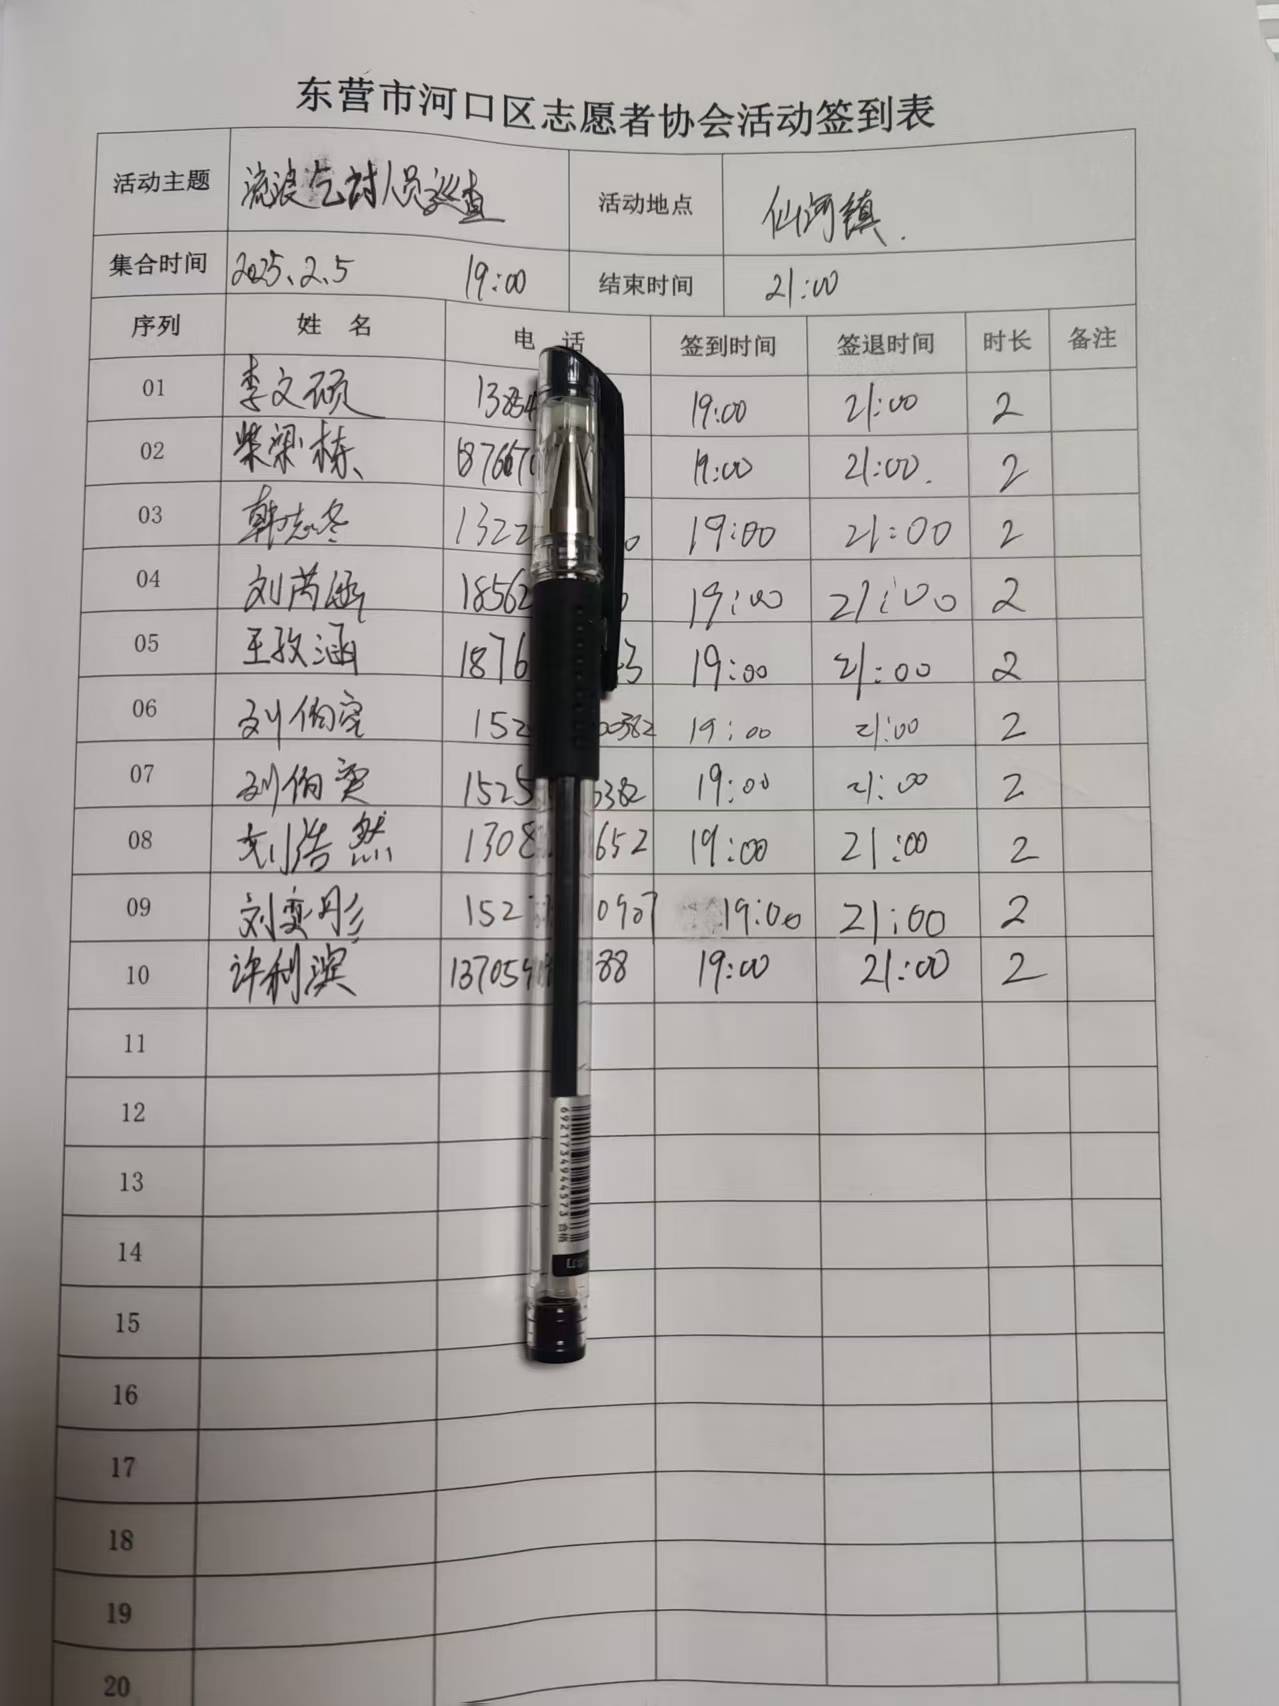 东营市河口区志愿者协会活动签到表
活动主题 流浪乞讨人员巡查 活动地点 仙河镇.
集合时间 2025.2.5 19:00 结束时间 21:00
序列 姓 名 电 话 签到时间 签退时间 时长 备注
01 李文硕 1385 19:00 21:00 2
02 柴梁栋 19:00 21:00. 2
03 韩志冬 1322 0 19:00 21:00 2
04 刘芮涵 18562 19:00 21:00 2
05 王孜涵 1876 3 19:00 21:00 2
06 刘伯完 152 00382 19:00 21:00 2
07 刘伯实 1525 0382 19:00 21:00 2
08 刘浩然 1308 652 19:00 21:00 2
09 刘奕彤 152 0907 19:00 21:00 2
10 许利滨 13705 88 19:00 21:00 2
11
12
13
6921734944573 合格
14
15
16
17
18
19
20